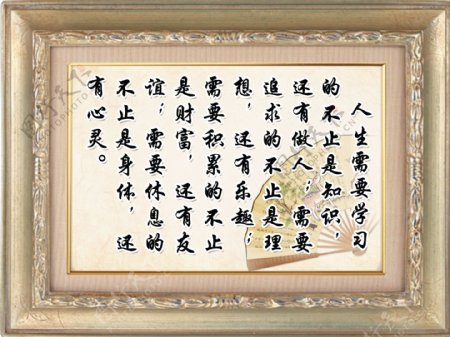 人生需要学习
的不止是知识，
还有做人；需要
追求的不止是理
想，还有乐趣；
需要积累的不止
是财富，还有友
谊；需要休息的
不止是身体，还
有心灵。